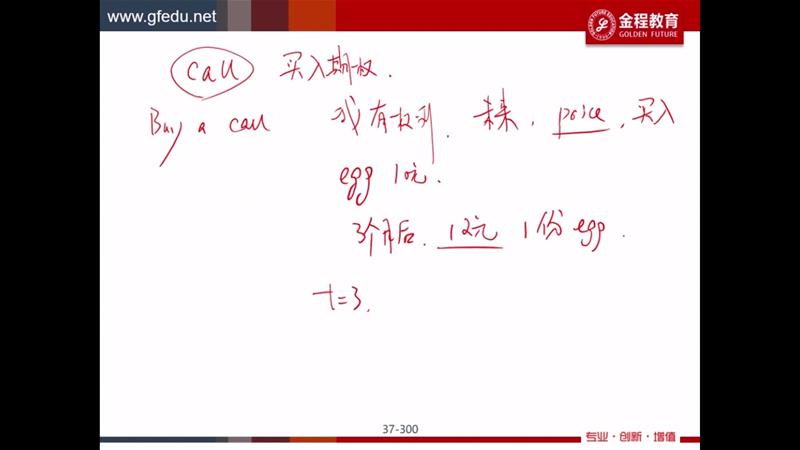 www.gfedu.net
金程教育
GOLDEN FUTURE
call 买入期权.
Buy a call 我有权利. 未来, price, 买入
egg 10元.
3个月后. 12元 1份 egg.
t=3.
37-300
专业·创新·增值